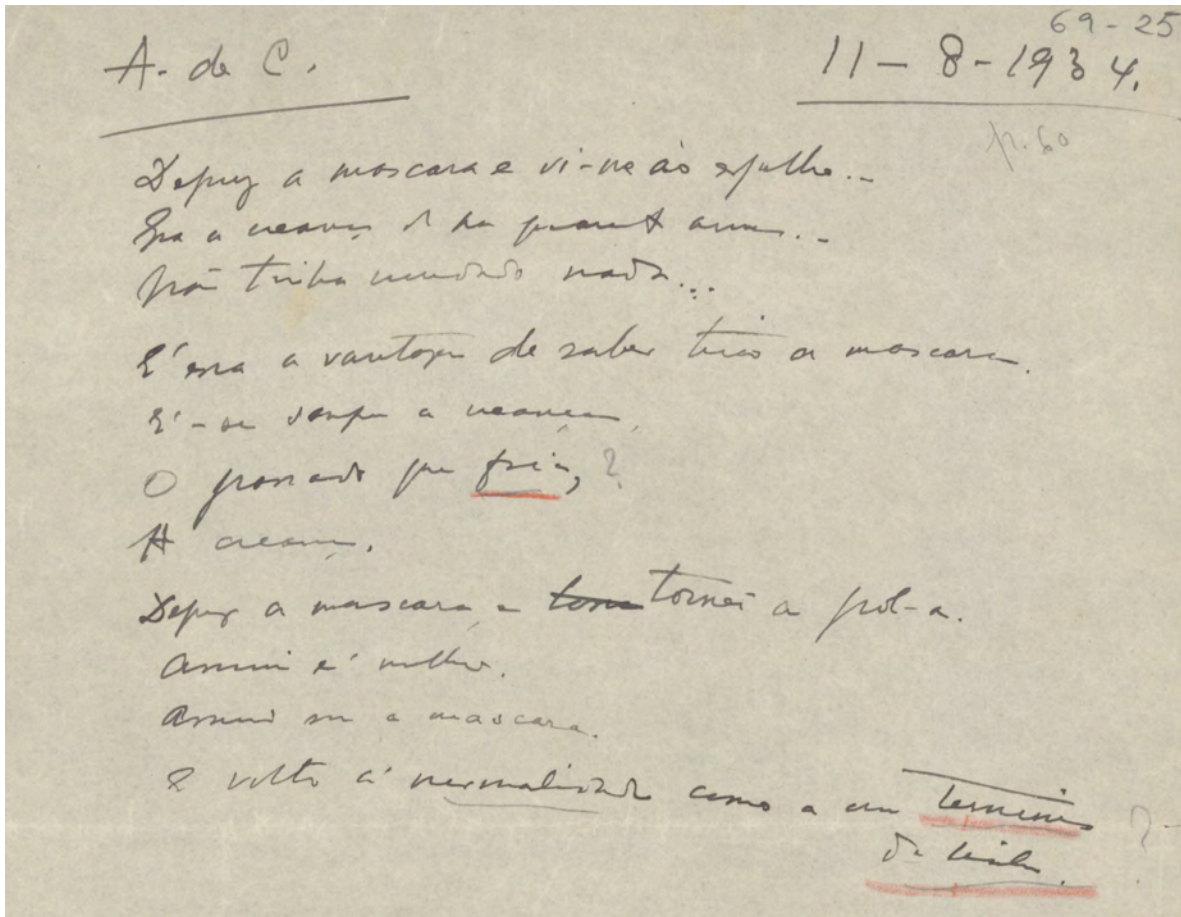 69-25
A. de C.
11-8-1934.
p. 60
Depuz a mascara e vi-me ao espelho...
Era a creança de ha quantos annos...
Não tinha mudado nada...
É essa a vantagem de saber tirar a mascara.
É-se sempre a creança,
O passado que fica, ?
A creança.
Depuz a mascara, e tornei a pol-a.
Assim é melhor.
Assim sou a mascara.
E volto á normalidade como a um terminus
de linha.